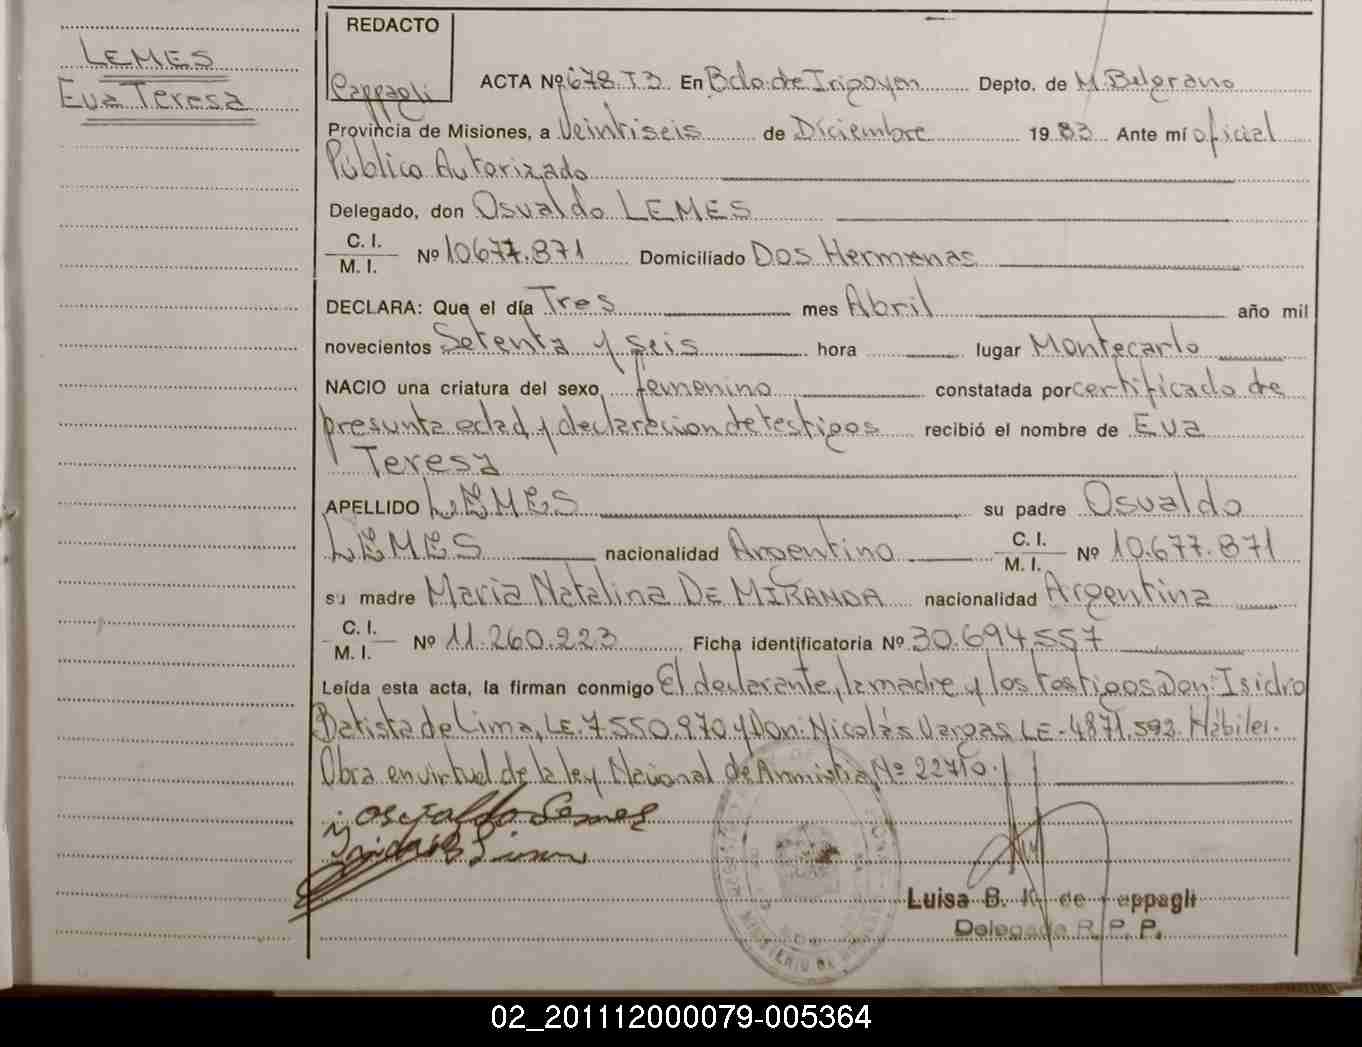 LEMES
Eva Teresa
REDACTO
Cappagli
ACTA Nº 678.T3. En Bdo. de Irigoyen Depto. de M. Belgrano
Provincia de Misiones, a Veintiseis de Diciembre 1983 Ante mí oficial
Público Autorizado
Delegado, don Osvaldo LEMES
C. I.
M. I. Nº 10.677.871 Domiciliado Dos Hermenas
DECLARA: Que el día Tres mes Abril año mil
novecientos Setenta y seis hora lugar Montecarlo
NACIO una criatura del sexo femenino constatada por certificado de
presunta edad y declaracion de testigos recibió el nombre de Eva
Teresa
APELLIDO LEMES su padre Osvaldo
LEMES nacionalidad Argentino C. I.
M. I. Nº 10.677.871
su madre Maria Natalina DE MIRANDA nacionalidad Argentina
C. I.
M. I. Nº 11.260.223 Ficha identificatoria Nº 30.694.557
Leída esta acta, la firman conmigo El declarante, la madre y los testigos Don: Isidro
Batista de Lima, LE. 7.550.970 y Don: Nicolás Vargas LE- 4871.592. Hábiles.
Obra en virtud de la ley Nacional de Amnistia Nº 22710.
Osvaldo Lemes
Luisa B. K. de Cappagli
Delegada R. P. P.
02_201112000079-005364